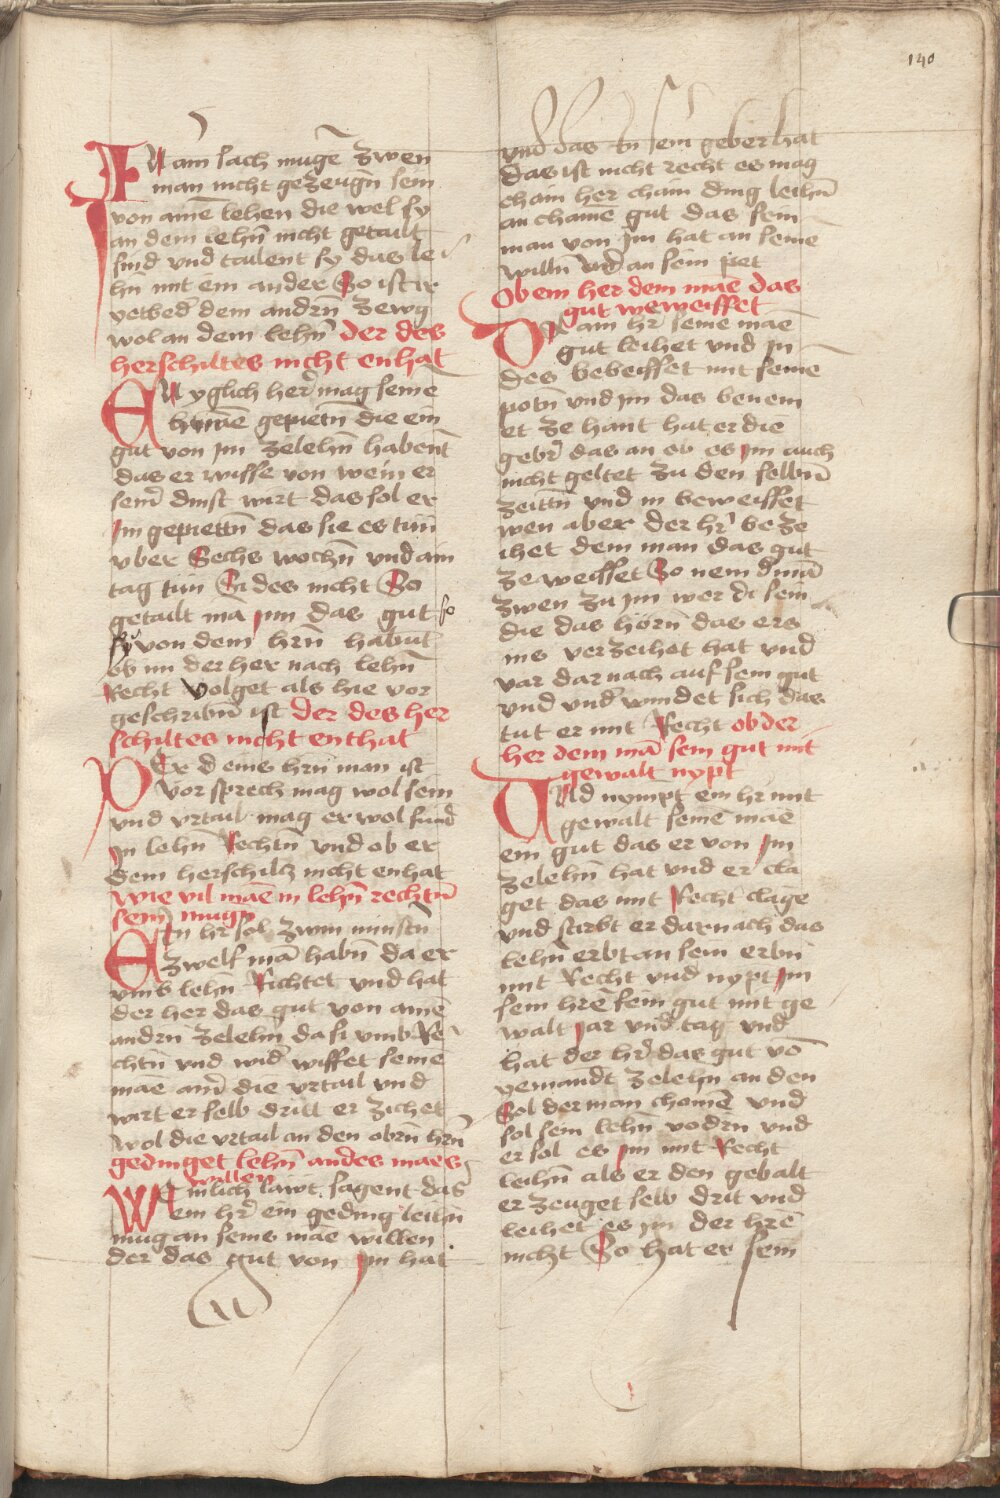 140
IN ainˀ sach mugē zwen
man nicht gezeugn̄ sein
von ainē lehen die wel sy
an dem lehn̄ nicht getailt
sind vnd tailent sy das le
hn̄ mit ein ander So ist ir
yetwed' dem andrn̄ zewg
wol an dem lehn̄ der des
herschiltes nicht enhat
EIn yglich her mag seinē
gepietn̄ die ein
gut von jm zelehn̄ habent
das er wisse von wem er
sein' dinst wirt das sol er
jm gepiettn̄ das sie es tūn
vber Sechs wochn̄ vnd ain
tag tūn Si des nicht So
getailt mā jm das gut so
sy von dem hrn̄ habnt
ob im der her nach lehn̄
Recht volget als hie vor
geschribn̄ ist der des her
schiltes nicht enthat
DEr d eins hrn̄ man ist
vorsprech mag wol sein
vnd vrtail mag er wol find
jn lehn̄ Rechtn̄ vnd ob er
dem herschilz nicht enhat
wie vil māe in lehn̄ rechtn̄
sein mugn̄
EIn hr sol zwm minstn̄
zwelf mā habn̄ da er
vmb lehn̄ Richtet vnd hat
der her das gut von ainē
andrn̄ zelehn̄ da si vmb Re
chtn̄ vnd wid' wisset seinē
māe ainˀ die vrtail vnd
wirt er selb dritt er zichet
wol die vrtail an den obrn̄ hrn̄
gedinget lehn̄ an des maes
willen
WEinlich lawt sagent das
ein hr ein geding leihn̄
mug an seins māe willen
der das gut von jm hat
vnd das in sein geber hat
das ist nicht recht es mag
chain her chain ding leihn̄
an chainē gut das sein
man von jm hat an seinē
willn̄ vnd an sein pet
Ob ein her dem māe das
gut weweisset
DA ain hr seinē māe
gut leihet vnd jn
des beweisset mit seinē
potn̄ vnd jm das benem
et ze hant hat er die
gebr das an ob es jm auch
nicht geltet zu den selbn̄
zeittn̄ vnd in beweisset
wen aber der hr be ze
ihet dem man das gut
ze weisset So nem d mā
zwen zu jm wer di sein
die das hörn̄ das ers
ins verzeihet hat vnd
var dar nach auf sein gut
vnd vnd'windet sich das
tut er mit Recht ob der
her dem mā sein gut mit
gewalt nypt
VNd nympt ein hr mit
gewalt seinē māe
ein gut das er von jm
zelehn̄ hat vnd er cla
get das mit Recht clage
vnd stirbt er darnach das
lehn̄ erbt an sein erbn̄
mit Recht vnd nypt jm
sein hre sein gut mit ge
walt jar vnd tag vnd
hat der hr das gut vō
yemandt zelehn̄ an den
Sol der man chomē vnd
sol sein lehn̄ vodrn̄ vnd
er sol es jm mit Recht
leihn̄ als er den gebalt
er zeuget selb drit vnd
leihet es jm der hrē
nicht So hat er sein